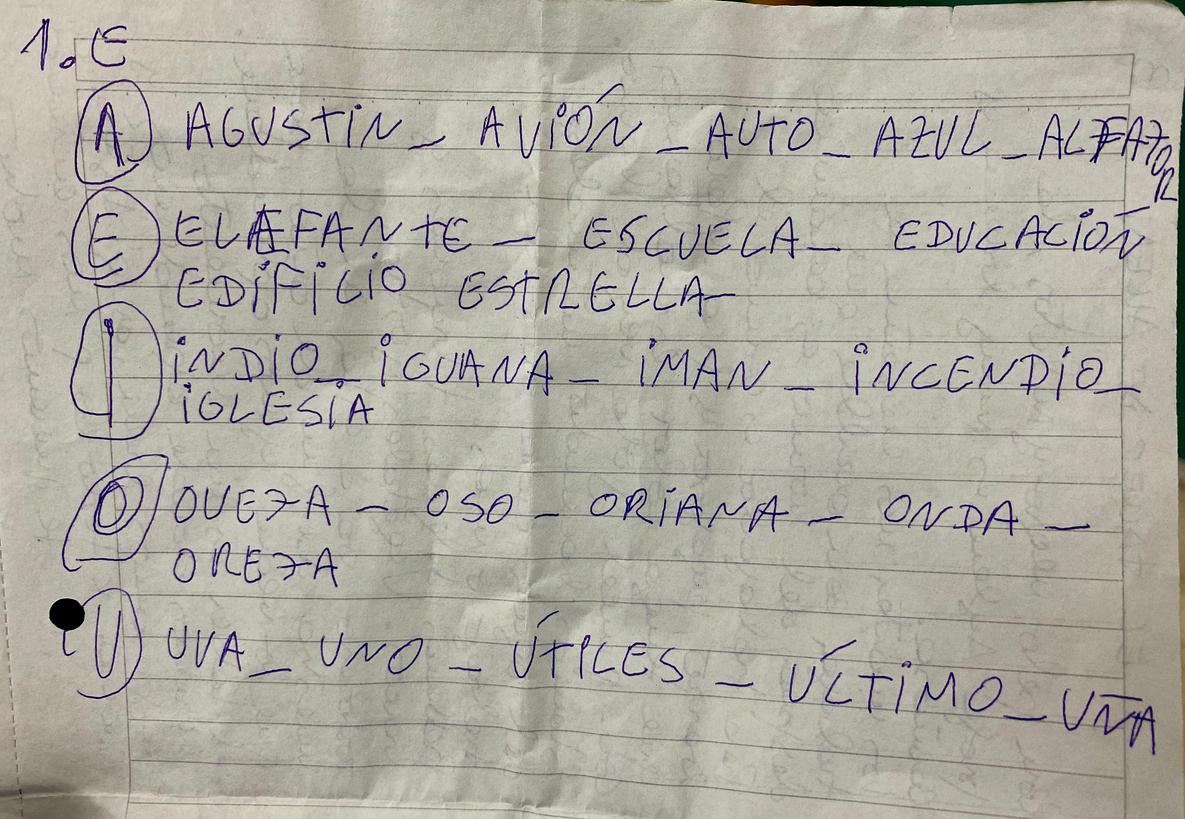 1. E
A AGUSTIN - AVIÓN - AUTO - AZUL - ALFAJOR
E ELEFANTE - ESCUELA - EDUCACIÓN
EDIFICIO ESTRELLA -
I INDIO - IGUANA - IMAN - INCENDIO -
IGLESIA
O OVEJA - OSO - ORIANA - ONDA -
OREJA
U UVA - UNO - ÚTILES - ÚLTIMO - UÑA